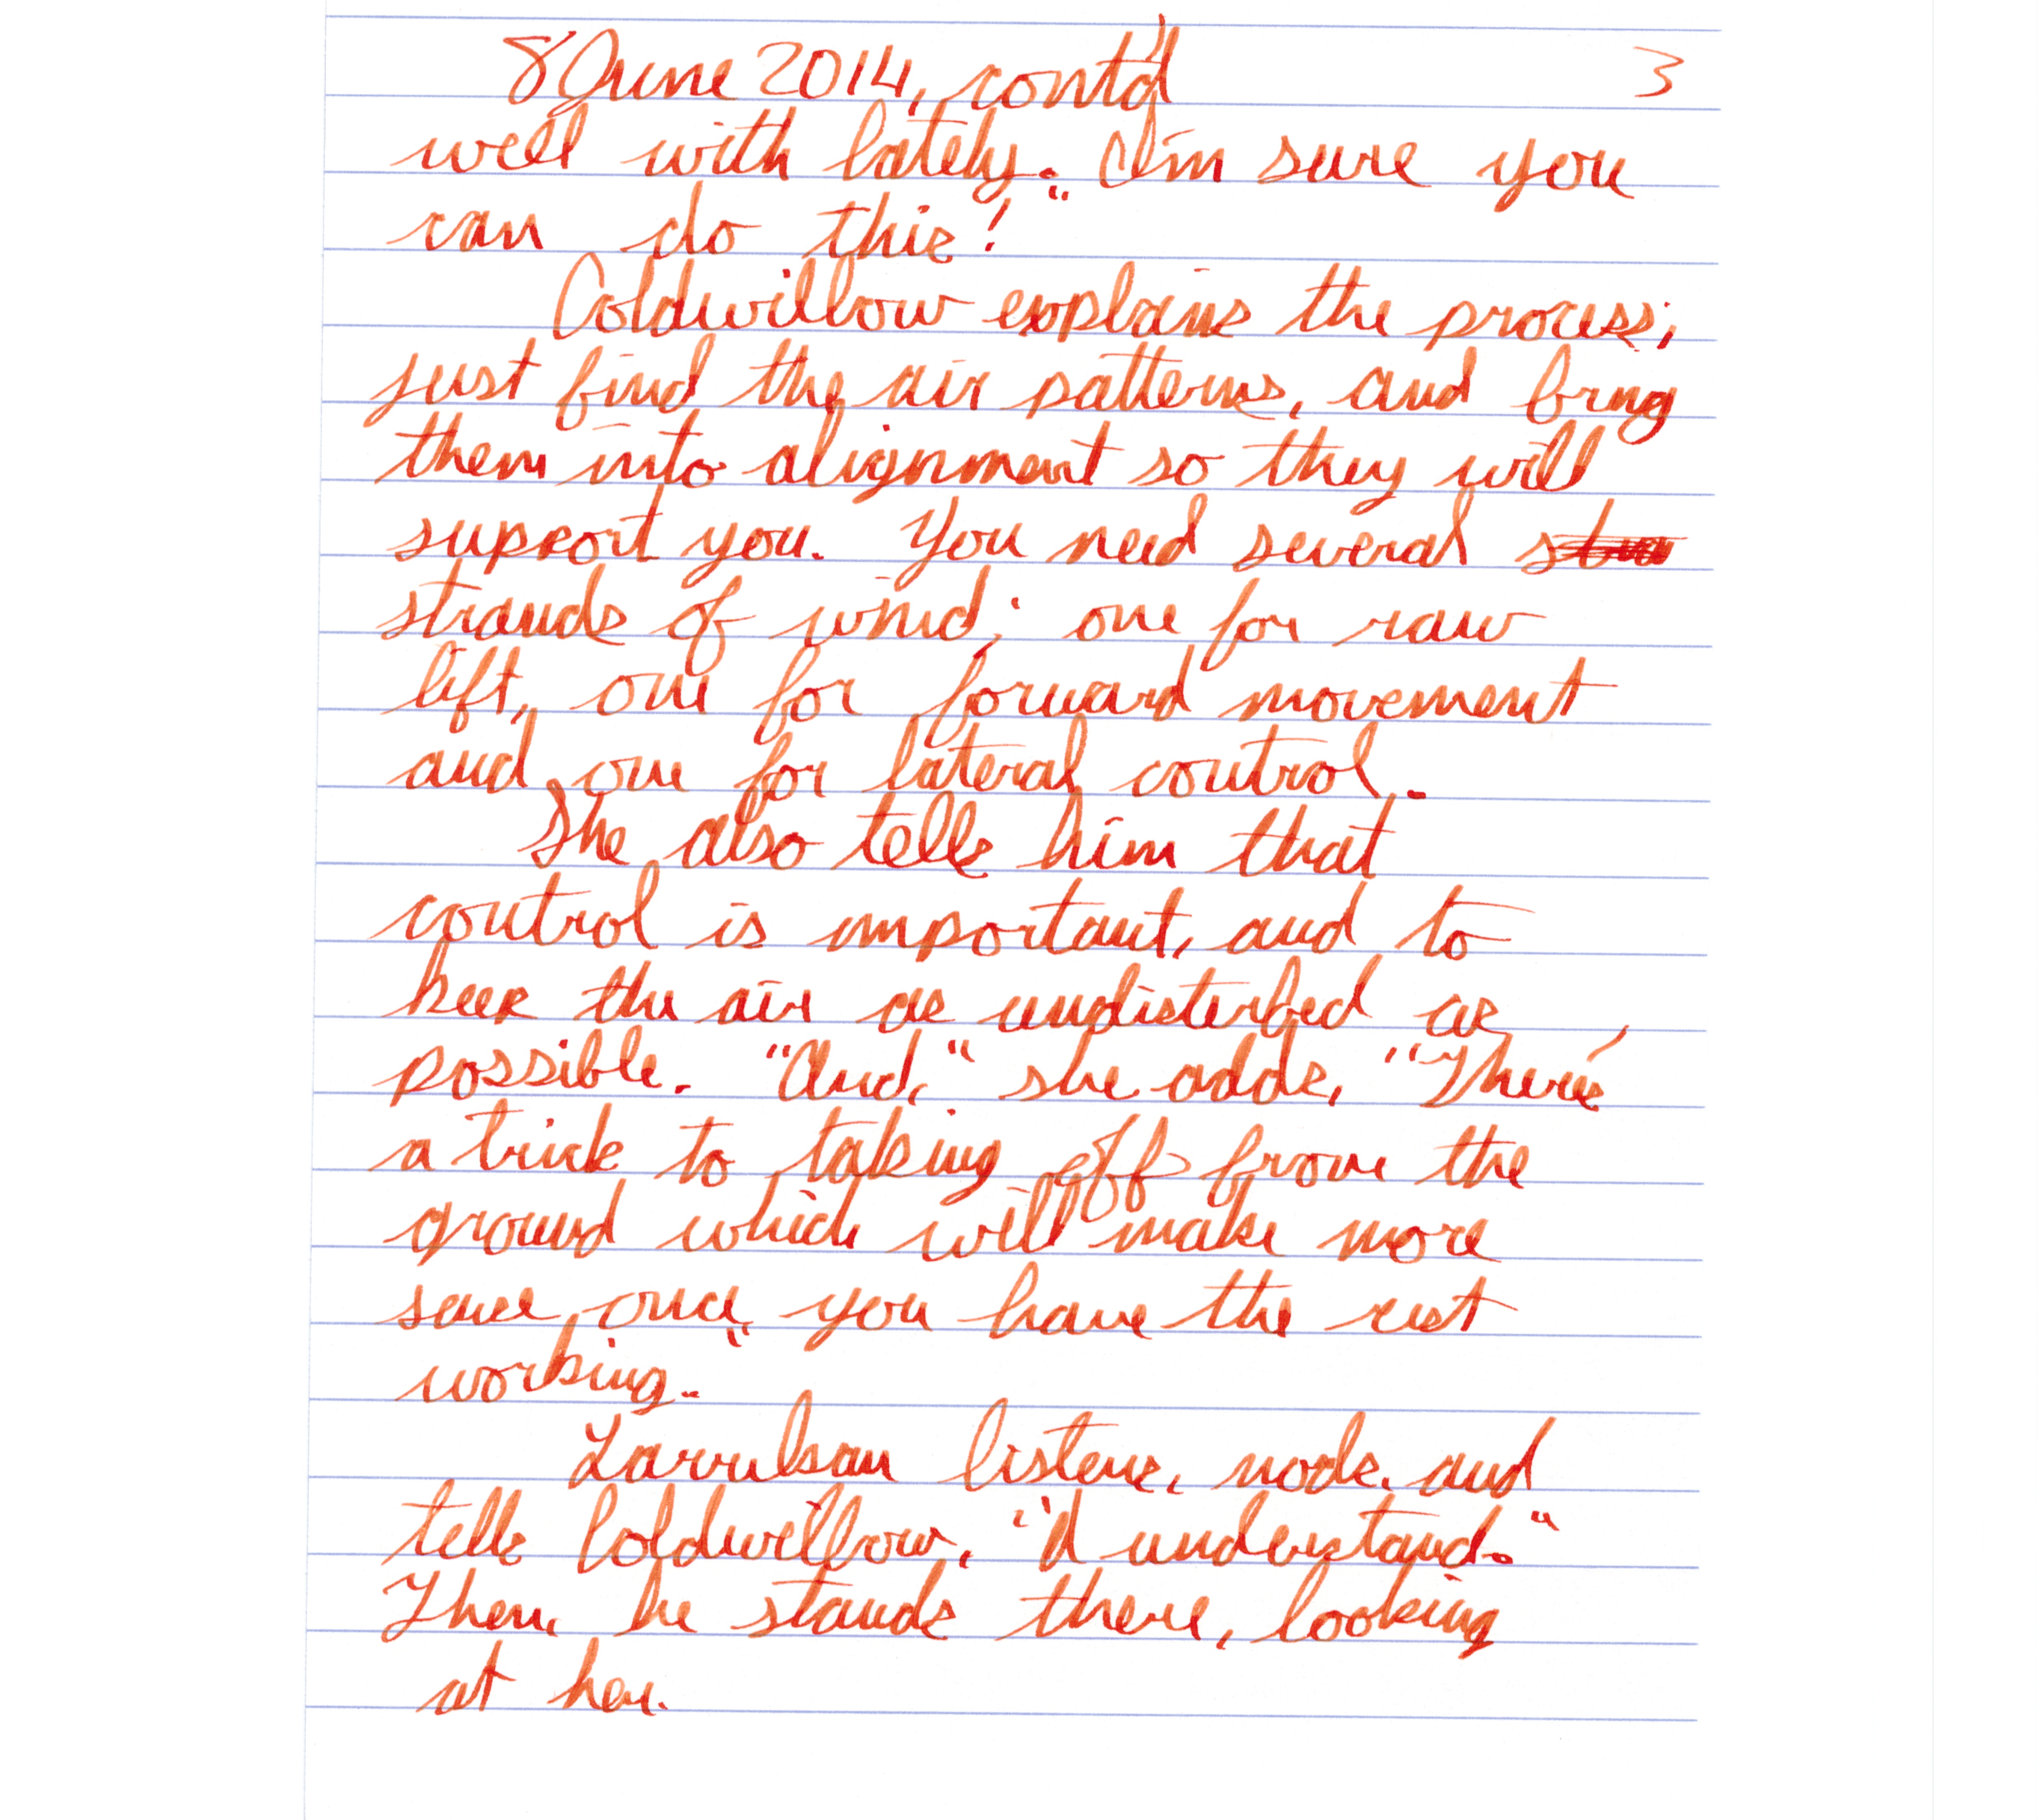 8 June 2014, cont'd 3
well with lately. I'm sure you
can do this!"
Coldwillow explains the process;
just find the air patterns, and bring
them into alignment so they will
support you. You need several
strands of wind; one for raw
lift, one for forward movement
and one for lateral control.
She also tells him that
control is important, and to
keep the air as undisterbed as
possible. "And," she adds, "There's
a trick to taking off from the
ground which will make more
sense once you have the rest
working."
listens, nods, and
tells Coldwillow, "I understand."
Then he stands there, looking
at her.